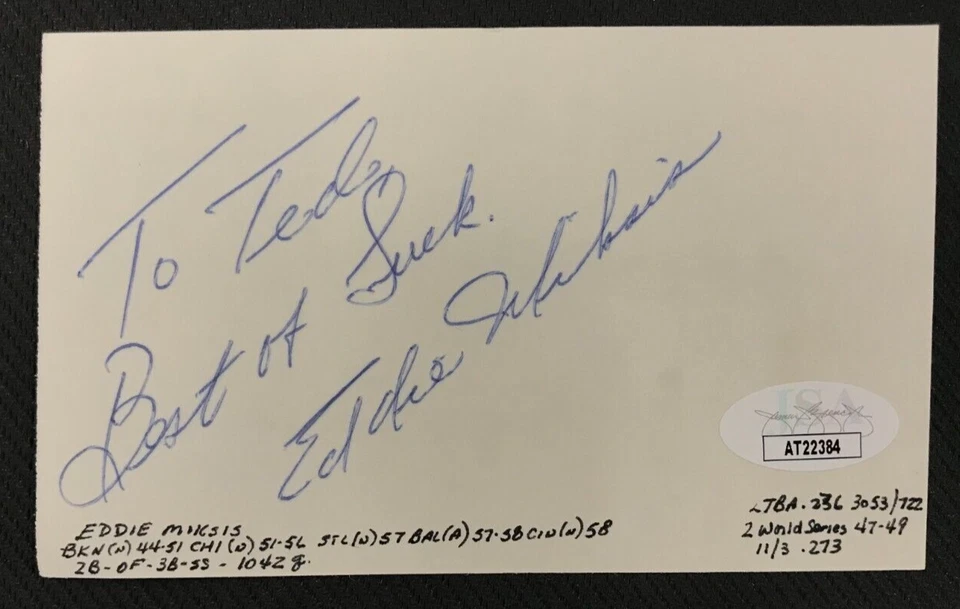 To Ted
Best of Luck.
Eddie Miksis
JSA
AT22384
EDDIE MIKSIS
BKN(N) 44-51 CHI(N) 51-56 STL(N) 57 BAL(A) 57-58 CIN(N) 58
2B-OF-3B-SS - 1042 g.
LTBA .236 3053/722
2 World Series 47-49
11/3 .273